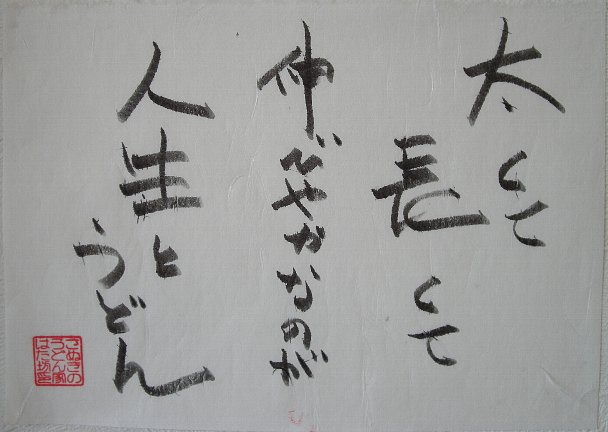 太くて
長くて
伸びやかなのが
人生と
うどん
さぬきの
うどん家
はた坊